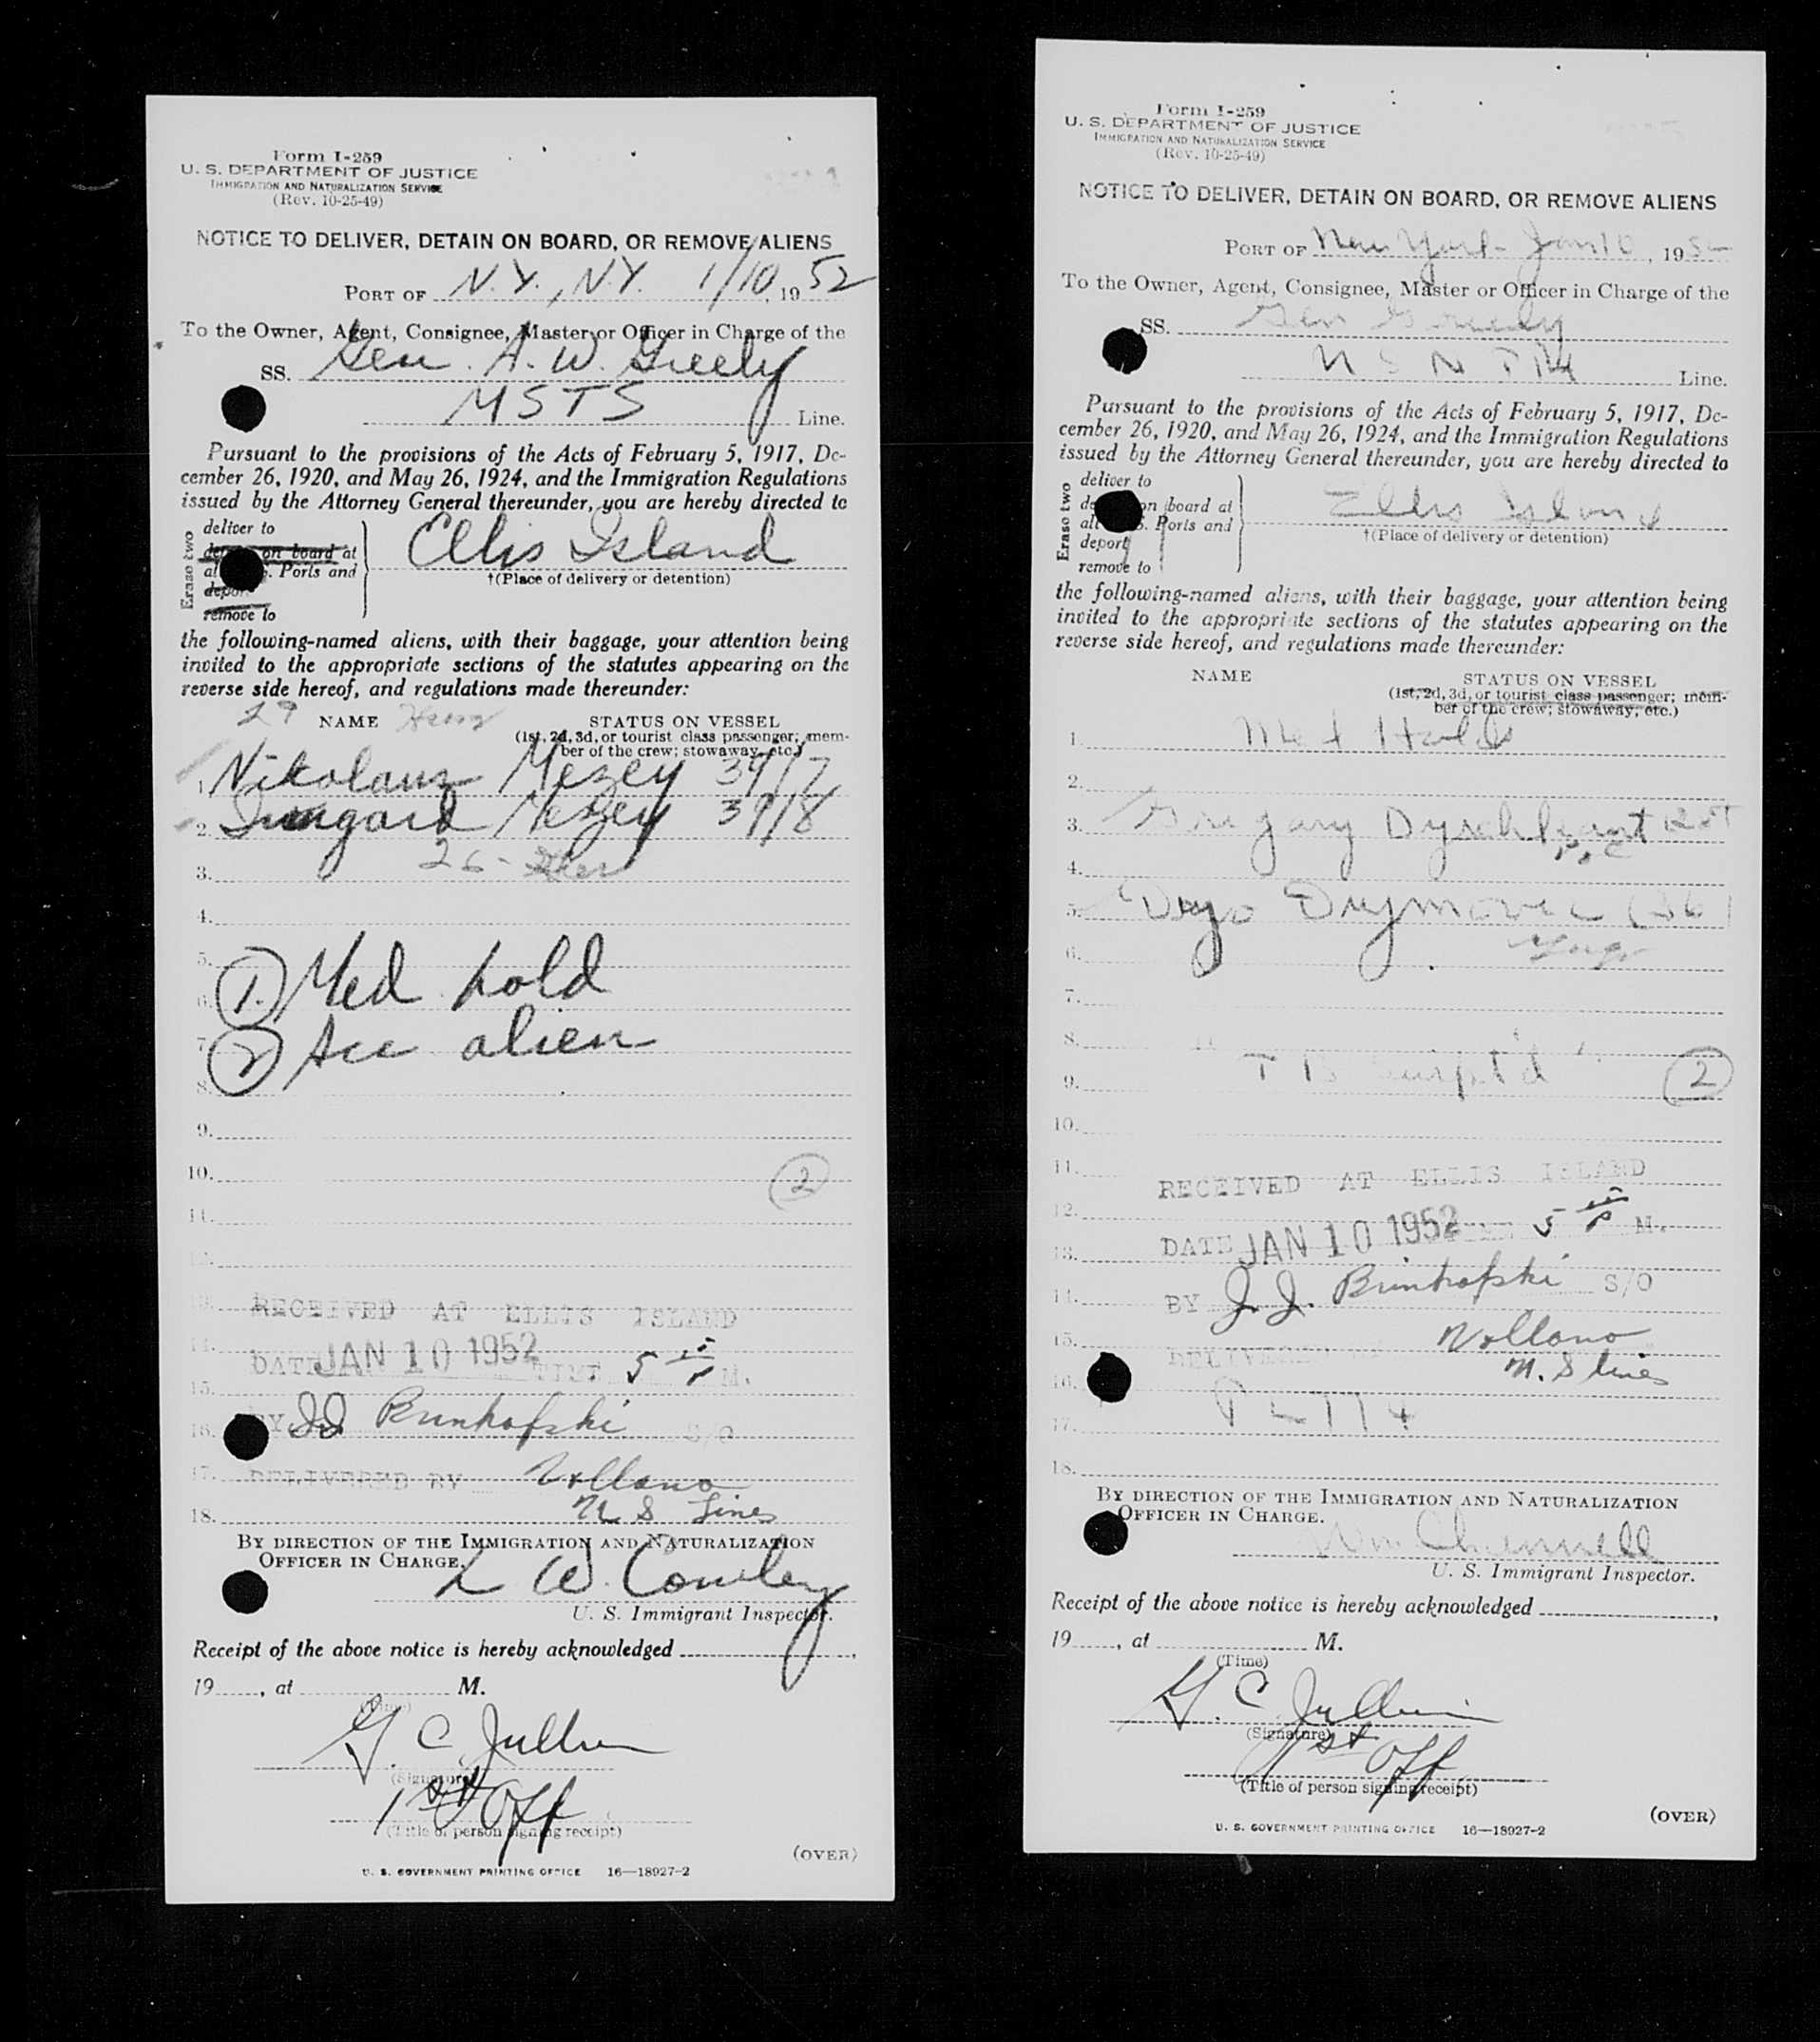 Form I-259
U. S. DEPARTMENT OF JUSTICE
IMMIGRATION AND NATURALIZATION SERVICE
(Rev. 10-25-49)
NOTICE TO DELIVER, DETAIN ON BOARD, OR REMOVE ALIENS
PORT OF N.Y., N.Y. 1/10, 1952
To the Owner, Agent, Consignee, Master or Officer in Charge of the
SS. Gen. A. W. Greely
MSTS Line.
Pursuant to the provisions of the Acts of February 5, 1917, De-
cember 26, 1920, and May 26, 1924, and the Immigration Regulations
issued by the Attorney General thereunder, you are hereby directed to
Erase two
deliver to
on board at
Ports and
remove to
Ellis Island
†(Place of delivery or detention)
the following-named aliens, with their baggage, your attention being
invited to the appropriate sections of the statutes appearing on the
reverse side hereof, and regulations made thereunder:
29 NAME STATUS ON VESSEL
(1st, 2d, 3d, or tourist class passenger; mem-
ber of the crew; stowaway, etc.)
1. Nikolaus Mezey 39/7
2. Mezey 39/8
3. 26 -
4.
5.
6. 1. Med hold
7. 2 Acc alien
8.
9.
10. 2
11.
12.
13. RECEIVED AT ELLIS ISLAND
14. DATE JAN 10 1952 TIME 5 P M.
15.
16. BY JJ Brinkofski S/O
17. DELIVERED BY Vollano
18. U S Lines
BY DIRECTION OF THE IMMIGRATION AND NATURALIZATION
OFFICER IN CHARGE.
L W. Cowley
U. S. Immigrant Inspector.
Receipt of the above notice is hereby acknowledged
19, at M.
(Time)
G. C. Jullien
(Signature)
1st Off
(Title of person signing receipt)
(OVER)
U. S. GOVERNMENT PRINTING OFFICE 16—18927-2
Form I-259
U. S. DEPARTMENT OF JUSTICE
IMMIGRATION AND NATURALIZATION SERVICE
(Rev. 10-25-49)
NOTICE TO DELIVER, DETAIN ON BOARD, OR REMOVE ALIENS
PORT OF New York Jan 10, 195
To the Owner, Agent, Consignee, Master or Officer in Charge of the
SS. Gen Greely
Line.
Pursuant to the provisions of the Acts of February 5, 1917, De-
cember 26, 1920, and May 26, 1924, and the Immigration Regulations
issued by the Attorney General thereunder, you are hereby directed to
Erase two
deliver to
on board at
Ports and
deport
remove to
Ellis Island
†(Place of delivery or detention)
the following-named aliens, with their baggage, your attention being
invited to the appropriate sections of the statutes appearing on the
reverse side hereof, and regulations made thereunder:
NAME STATUS ON VESSEL
(1st, 2d, 3d, or tourist class passenger; mem-
ber of the crew; stowaway, etc.)
1. Med Hold
2.
3.
4.
5.
6. Yugo
7.
8.
9. T B 2
10.
11. RECEIVED AT ELLIS ISLAND
12.
13. DATE JAN 10 1952 5 P M.
14. BY J. J. Brinkofski S/O
15. Vollano
16. Lines
17.
18.
BY DIRECTION OF THE IMMIGRATION AND NATURALIZATION
OFFICER IN CHARGE.
Wm Chennell
U. S. Immigrant Inspector.
Receipt of the above notice is hereby acknowledged,
19, at M.
(Time)
G. C. Jullien
(Signature)
1st Off
(Title of person signing receipt)
(OVER)
U. S. GOVERNMENT PRINTING OFFICE 16—18927-2